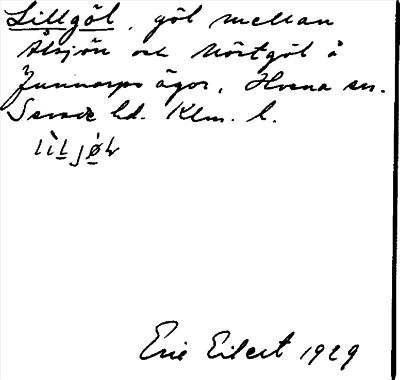 Lillgöl, göl mellan
Älsjön och Nörtgöl å
Gunnarps ägor, Hvena sn.
Sevede hd. Klm. l.
Eric Eilert 1929